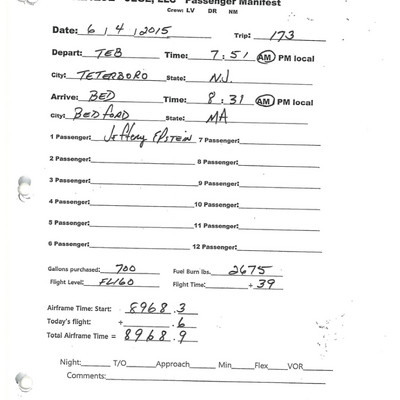 JEGE, LLC Passenger Manifest
Crew: LV DR NM
Date: 6 / 4 / 2015 Trip: 173
Depart: TEB Time: 7:51 AM PM local
City: TETERBORO State: N.J.
Arrive: BED Time: 8:31 AM PM local
City: BEDFORD State: MA
1 Passenger: Jeffery EPSTEIN 7 Passenger:
2 Passenger: 8 Passenger:
3 Passenger: 9 Passenger:
4 Passenger: 10 Passenger:
5 Passenger: 11 Passenger:
6 Passenger: 12 Passenger:
Gallons purchased: 700 Fuel Burn lbs. 2675
Flight Level: FL160 Flight Time: + 39
Airframe Time: Start: 8968.3
Today's flight: + .6
Total Airframe Time: = 8968.9
Night: T/O Approach Min Flex VOR
Comments: